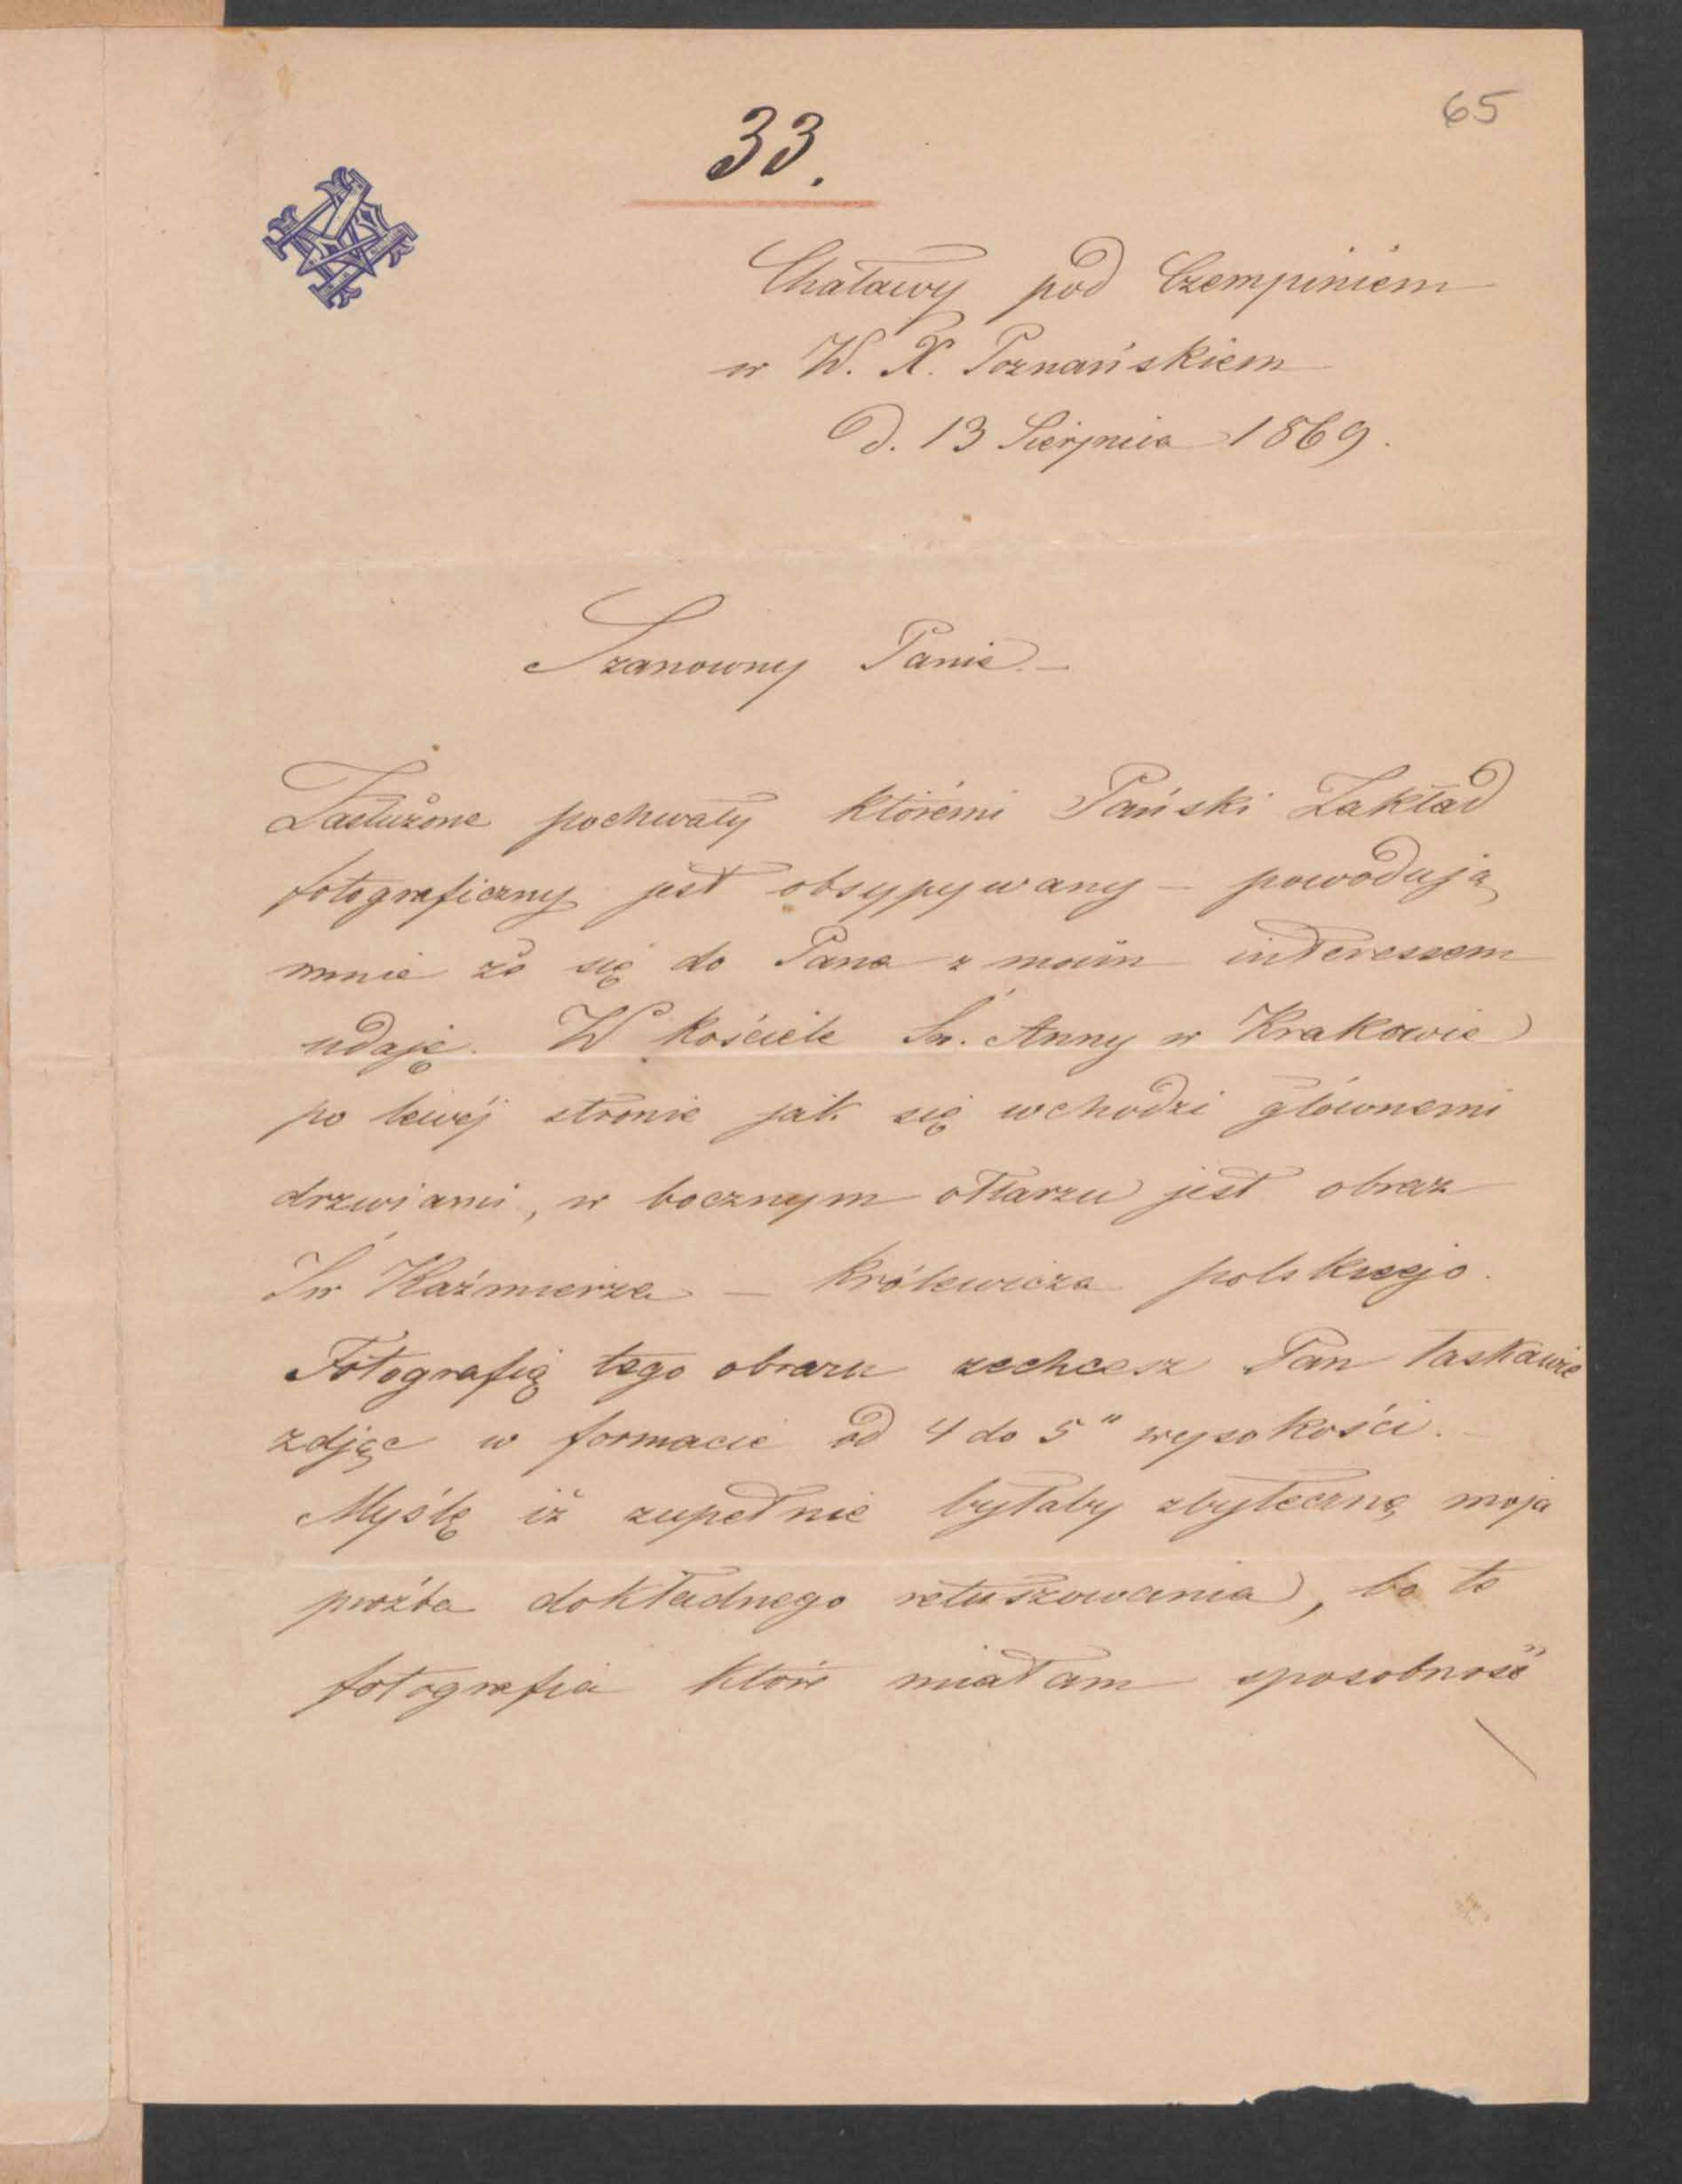 65
33.
Chaławy pod Czempiniem
w W. X. Poznańskiem
d. 13 Sierpnia 1869.
Szanowny Panie. —
Zasłużone pochwały którémi Pański Zakład
fotograficzny jest obsypywany — powodują
mnie że się do Pana z moim interessem
udaję. W kościele Św. Anny w Krakowie
po lewéj stronie jak się wchodzi głównemi
drzwiami, w bocznym ołtarzu jest obraz
Św Kaźmierza — królewicza polskiego.
Fotografię tego obrazu zechcesz Pan łaskawie
zdjąc w formacie od 4 do 5" wysokości. —
Myślę iż zupełnie byłaby zbyteczną moja
proźba dokładnego retuszowania, bo te
fotografia które miałam sposobność